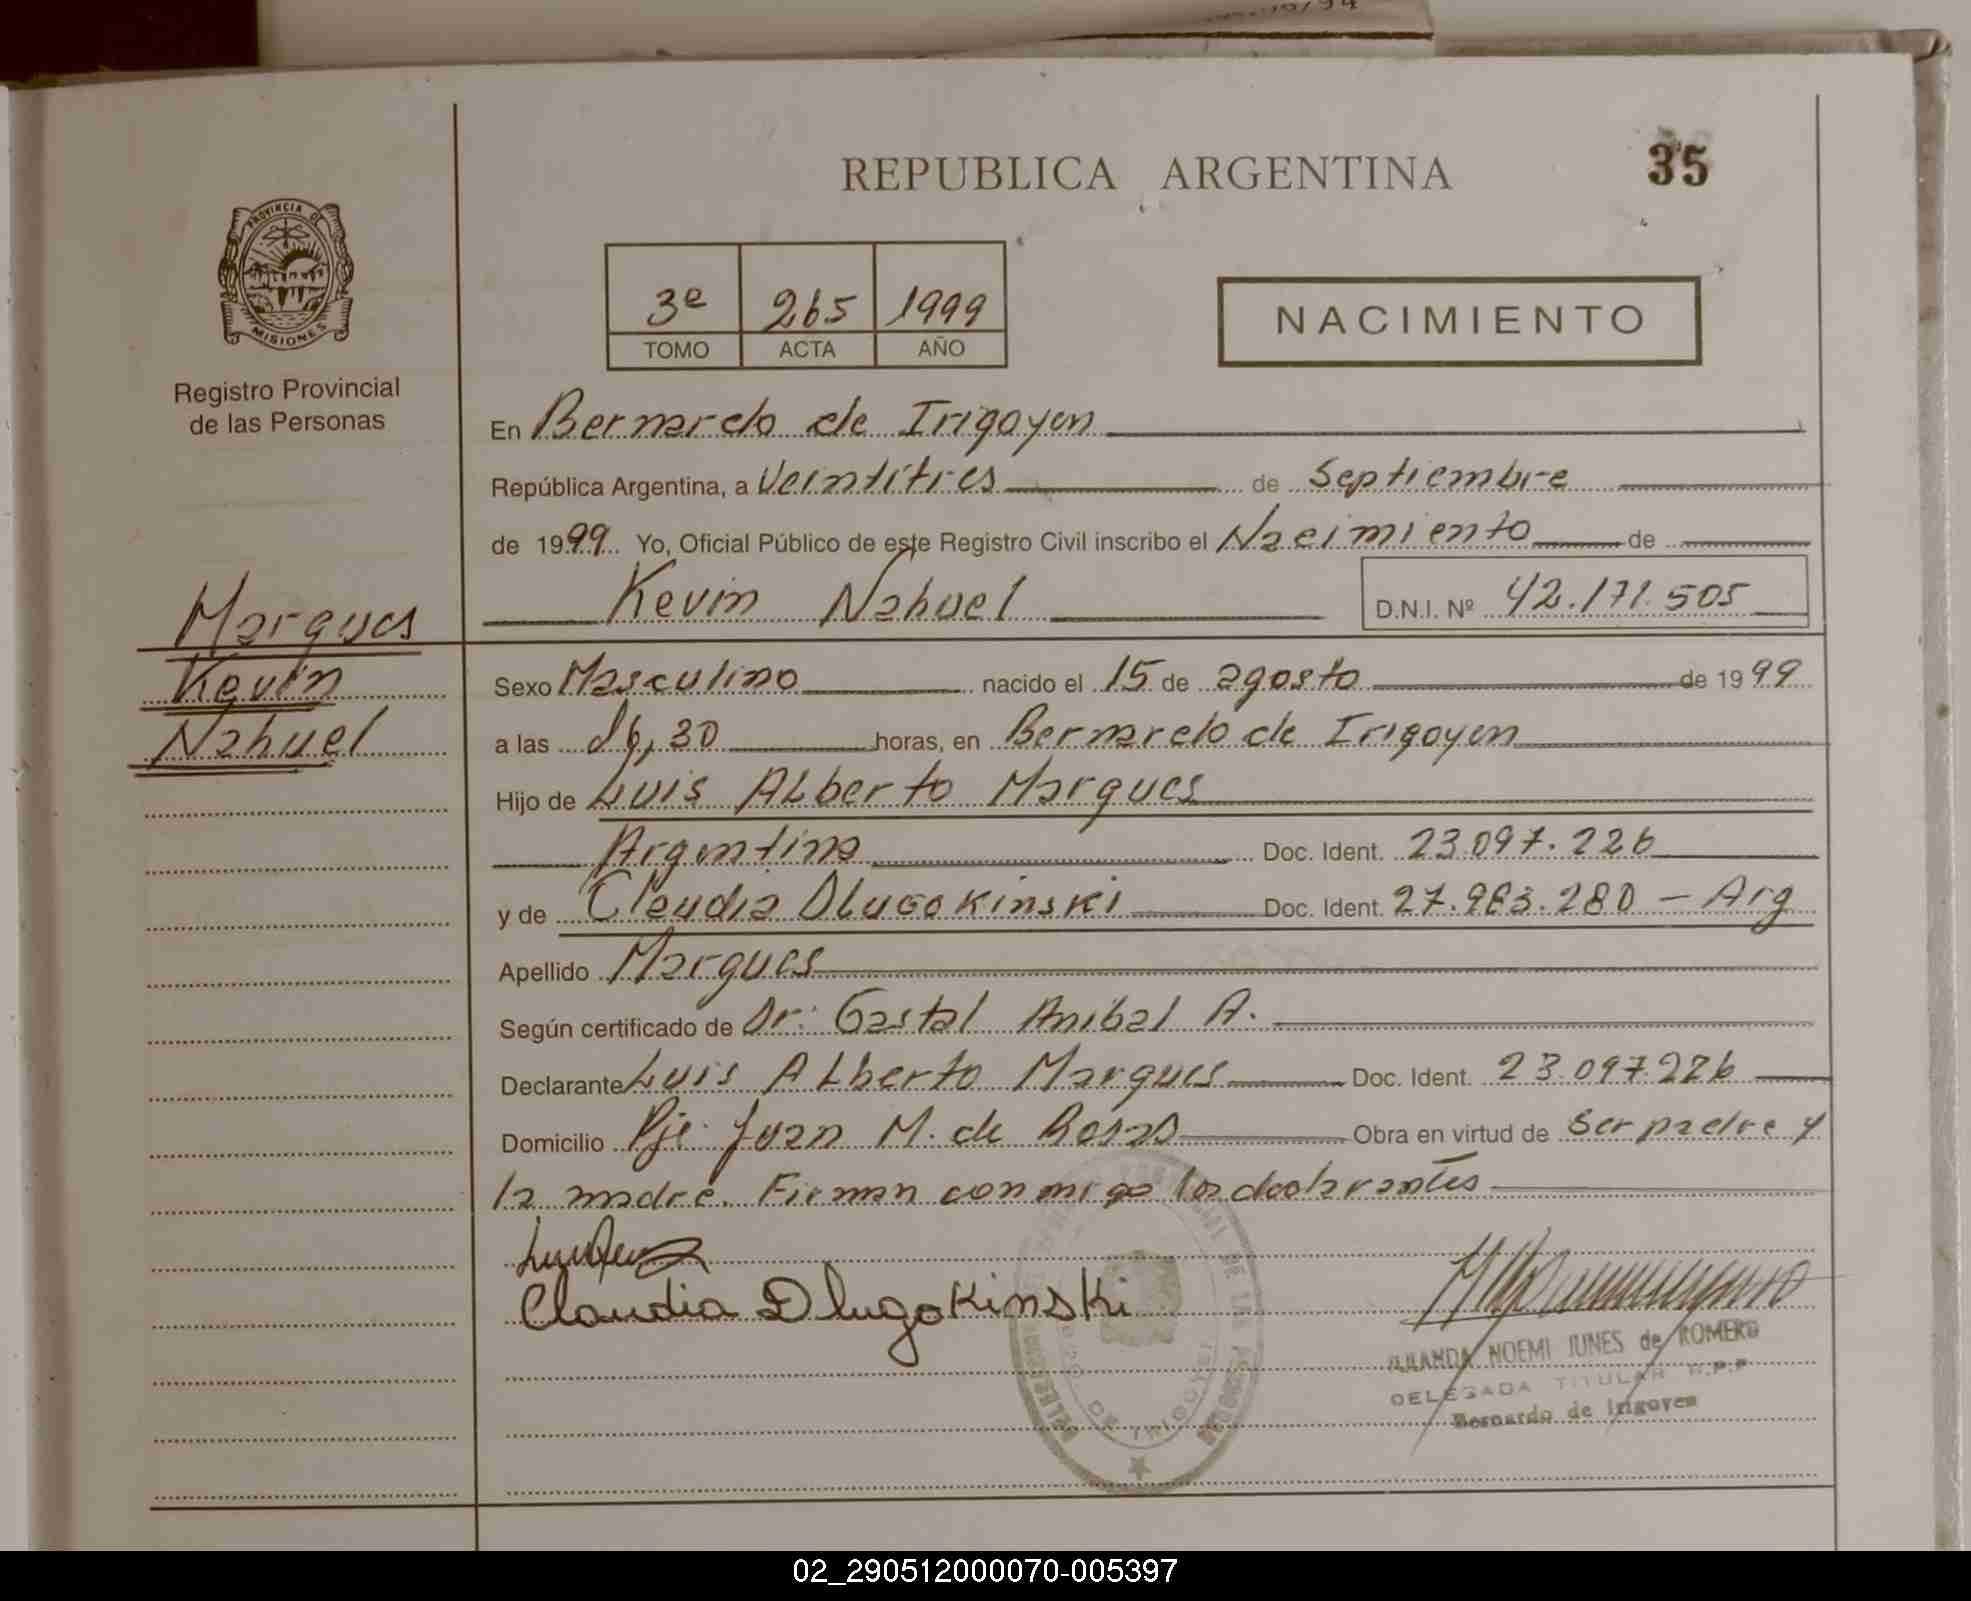 REPUBLICA ARGENTINA
35
PROVINCIA DE
MISIONES
Registro Provincial
de las Personas
3º 265 1999
TOMO ACTA AÑO
NACIMIENTO
En Bernardo de Irigoyen
República Argentina, a Veintitres de Septiembre
de 1999 Yo, Oficial Público de este Registro Civil inscribo el Nacimiento de
Kevin Nahuel D.N.I. Nº 42.171.505
Marques
Kevin
Nahuel
Sexo Masculino nacido el 15 de agosto de 1999
a las 16,30 horas, en Bernardo de Irigoyen
Hijo de Luis ALberto Marques
Argentino Doc. Ident. 23.097.226
y de Claudia DLugokinski Doc. Ident. 27.983.280 - Arg
Apellido Marques
Según certificado de Dr: Gastal Anibal A.
Declarante Luis ALberto Marques Doc. Ident. 23.097.226
Domicilio Pje. Juan M. de Rosas Obra en virtud de Ser padre y
la madre. Firman conmigo los declarantes
Claudia Dlugokinski
NOEMI JUNES de ROMERO
DELEGADA TITULAR R.P.P
Bernardo de Irigoyen
02_290512000070-005397